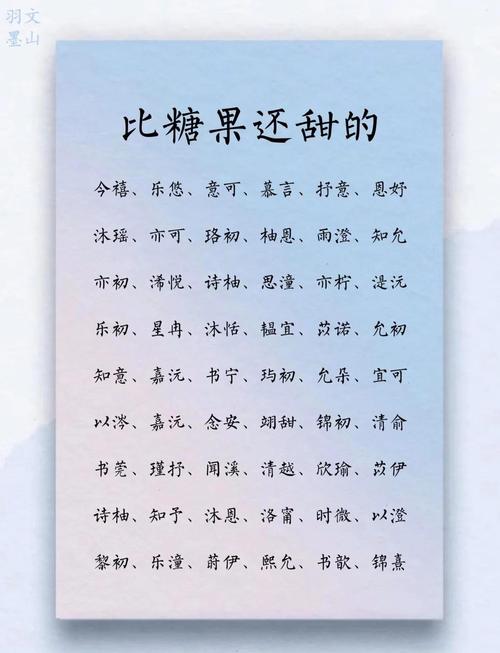 羽文
墨山
比糖果还甜的
今禧、乐悠、意可、慕言、抒意、恩妤
沐瑶、亦可、珞初、柚恩、雨澄、知允
亦初、浠悦、诗柚、思潼、亦柠、湜沅
乐初、星冉、沐恬、韫宜、苡诺、允初
知意、嘉沅、书宁、玙初、允朵、宜可
以涔、嘉沅、念安、翊甜、锦初、清俞
书莞、瑾抒、闻溪、清越、欣瑜、苡伊
诗柚、知予、沐恩、洛甯、时微、以澄
黎初、乐潼、蔚伊、熙允、书歆、锦熹